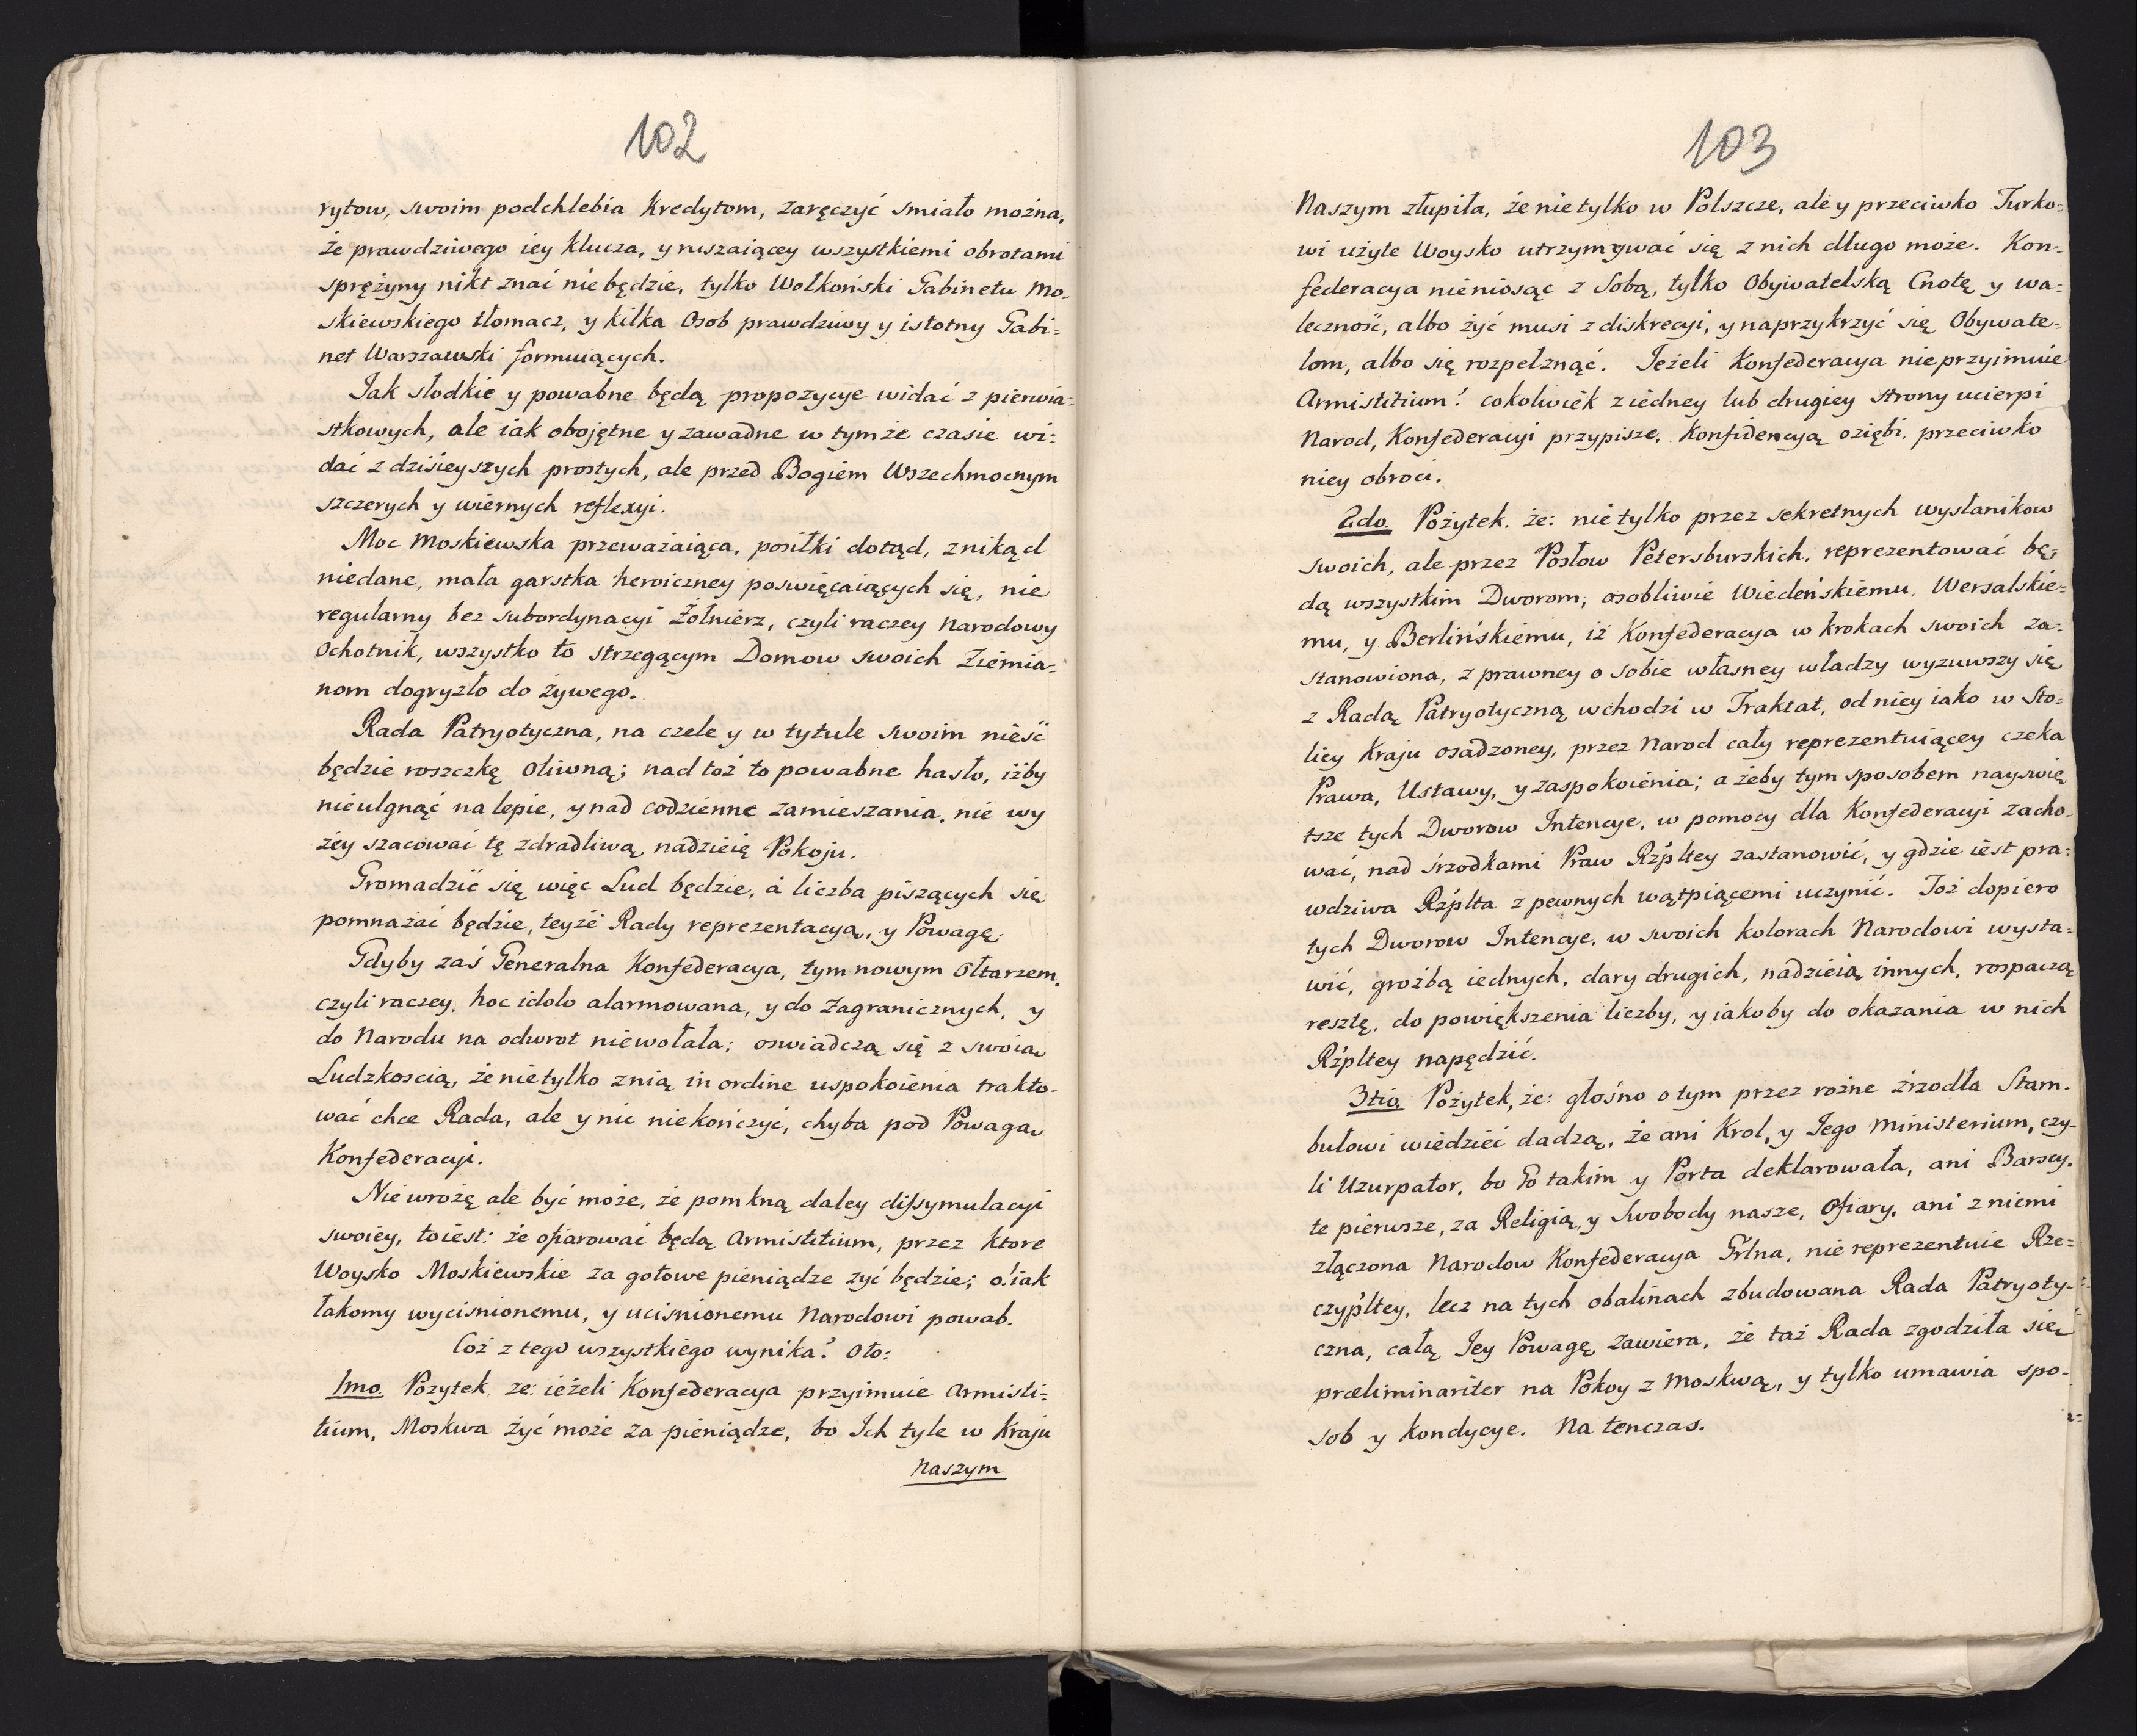 102
rytow, swoim podchlebia Kredytom, zaręczyć smiało można,
że prawdziwego iey klucza, y ruszaiącey wszystkiemi obrotami
sprężyny nikt znać niebędzie, tylko Wołkoński Gabinetu Mo-
skiewskiego tłomacz, y kilka Osob prawdziwy y istotny Gabi=
net Warszawski formuiących.
Jak słodkie y powabne będą propozycye widać z pierwia=
stkowych, ale iak obojętne y zawadne w tymże czasie wi=
dać z dzisieyszych prostych, ale przed Bogiem Wszechmocnym
szczerych y wiernych reflexyi.
Moc Moskiewska przeważaiąca, posiłki dotąd, znikąd
niedane, mała garstka heroiczney poswięcaiących się, nie
regularny bez subordynacyi Żołnierz, czyli raczey Narodowy
Ochotnik, wszystko to strzegącym Domow swoich Ziemia=
nom dogryzło do żywego.
Rada Patryotyczna, na czele y w tytule swoim nieść
będzie roszczkę Oliwną; nad toż to powabne hasło, iżby
nieulgnąć na lepie, y nad codzienne zamieszania, nie wy
żey szacować tę zdradliwą nadzieię Pokoju.
Gromadzić się więc Lud będzie, á liczba piszących się
pomnażać będzie, teyże Rady reprezentacyą, y Powagę.
Gdyby zaś Generalna Konfederacya, tym nowym Ołtarzem,
czyli raczey, hoc idolo alarmowana, y do Zagranicznych, y
do Narodu na odwrot niewołała; oswiadczą się z swoią
Ludzkoscią, że nietylko znią in ordine uspokoienia trakto-
wać chce Rada, ale y nic niekończyć, chyba pod Powagą
Konfederacyi.
Niewrożę ale być może, że pomkną daley dissymulacyi
swoiey, toiest: że ofiarować będą Armistitium, przez Ktore
Woysko Moskiewskie za gotowe pieniądze żyć będzie; o! iak
łakomy wycisnionemu, y ucisnionemu Narodowi powab.
Coż z tego wszystkiego wynika? Oto:
1mo. Pozytek, ze: ieżeli Konfederacya przyimuie Armisti=
tium, Moskwa żyć może za pieniądze, bo Ich tyle w Kraju
Naszym
103
Naszym złupiła, że nietylko w Polszcze, ale y przeciwko Turko=
wi użyte Woysko utrzymywać się z nich długo może. Kon=
federacya nieniosąc z Sobą, tylko Obywatelską Cnotę y wa=
leczność, albo żyć musi z diskrecyi, y naprzykrzyć się Obywate=
lom, albo się rozpełznąć. Jeżeli Konfederacya nieprzyimuie
Armistitium! cokolwiek z iedney lub drugiey strony ucierpi
Narod, Konfederacyi przypisze, Konfidencyą oziębi, przeciwko
niey obroci.
2do. Pożytek. że: nietylko przez sekretnych wysłanikow
swoich, ale przez Posłow Petersburskich, reprezentować bę=
dą wszystkim Dworom, osobliwie Wiedeńskiemu, Wersalskie=
mu, y Berlińskiemu, iż Konfederacya w krokach swoich za=
stanowiona, z prawney o sobie własney władzy wyzuwszy się
z Radą Patryotyczną wchodzi w Traktat, od niey iako w Sto=
licy Kraju osadzoney, przez Narod cały reprezentuiącey czeka
Prawa, Ustawy, y zaspokoienia; a żeby tym sposobem nayswię
tsze tych Dworow Intencye, w pomocy dla Konfederacyi zacho-
wać, nad śrzodkami Praw Rzpltey zastanowić, y gdzie iest pra=
wdziwa Rzplta z pewnych wątpiącemi uczynić. Toż dopiero
tych Dworow Intencye, w swoich kolorach Narodowi wysta=
wić, groźbą iednych, dary drugich, nadzieią innych, rospaczą
resztę, do powiększenia liczby, y iakoby do okazania w nich
Rzpltey napędzić.
3tio. Pożytek, że: głośno o tym przez rożne źrzodła Stam-
bułowi wiedzieć dadzą, że ani Krol, y Jego Ministerium, czy-
li Uzurpator, bo Go takim y Porta deklarowała, ani Barscy,
te pierwsze, za Religią, y Swobody nasze, Ofiary, ani z niemi
złączona Narodow Konfederacya Grlna, nie reprezentuie Rze=
czypltey, lecz na tych obalinach zbudowana Rada Patryoty-
czna, całą Jey Powagę zawiera, że taż Rada zgodziła się
præliminariter na Pokoy z Moskwą, y tylko umawia spo-
sob y Kondycye. Na tenczas.